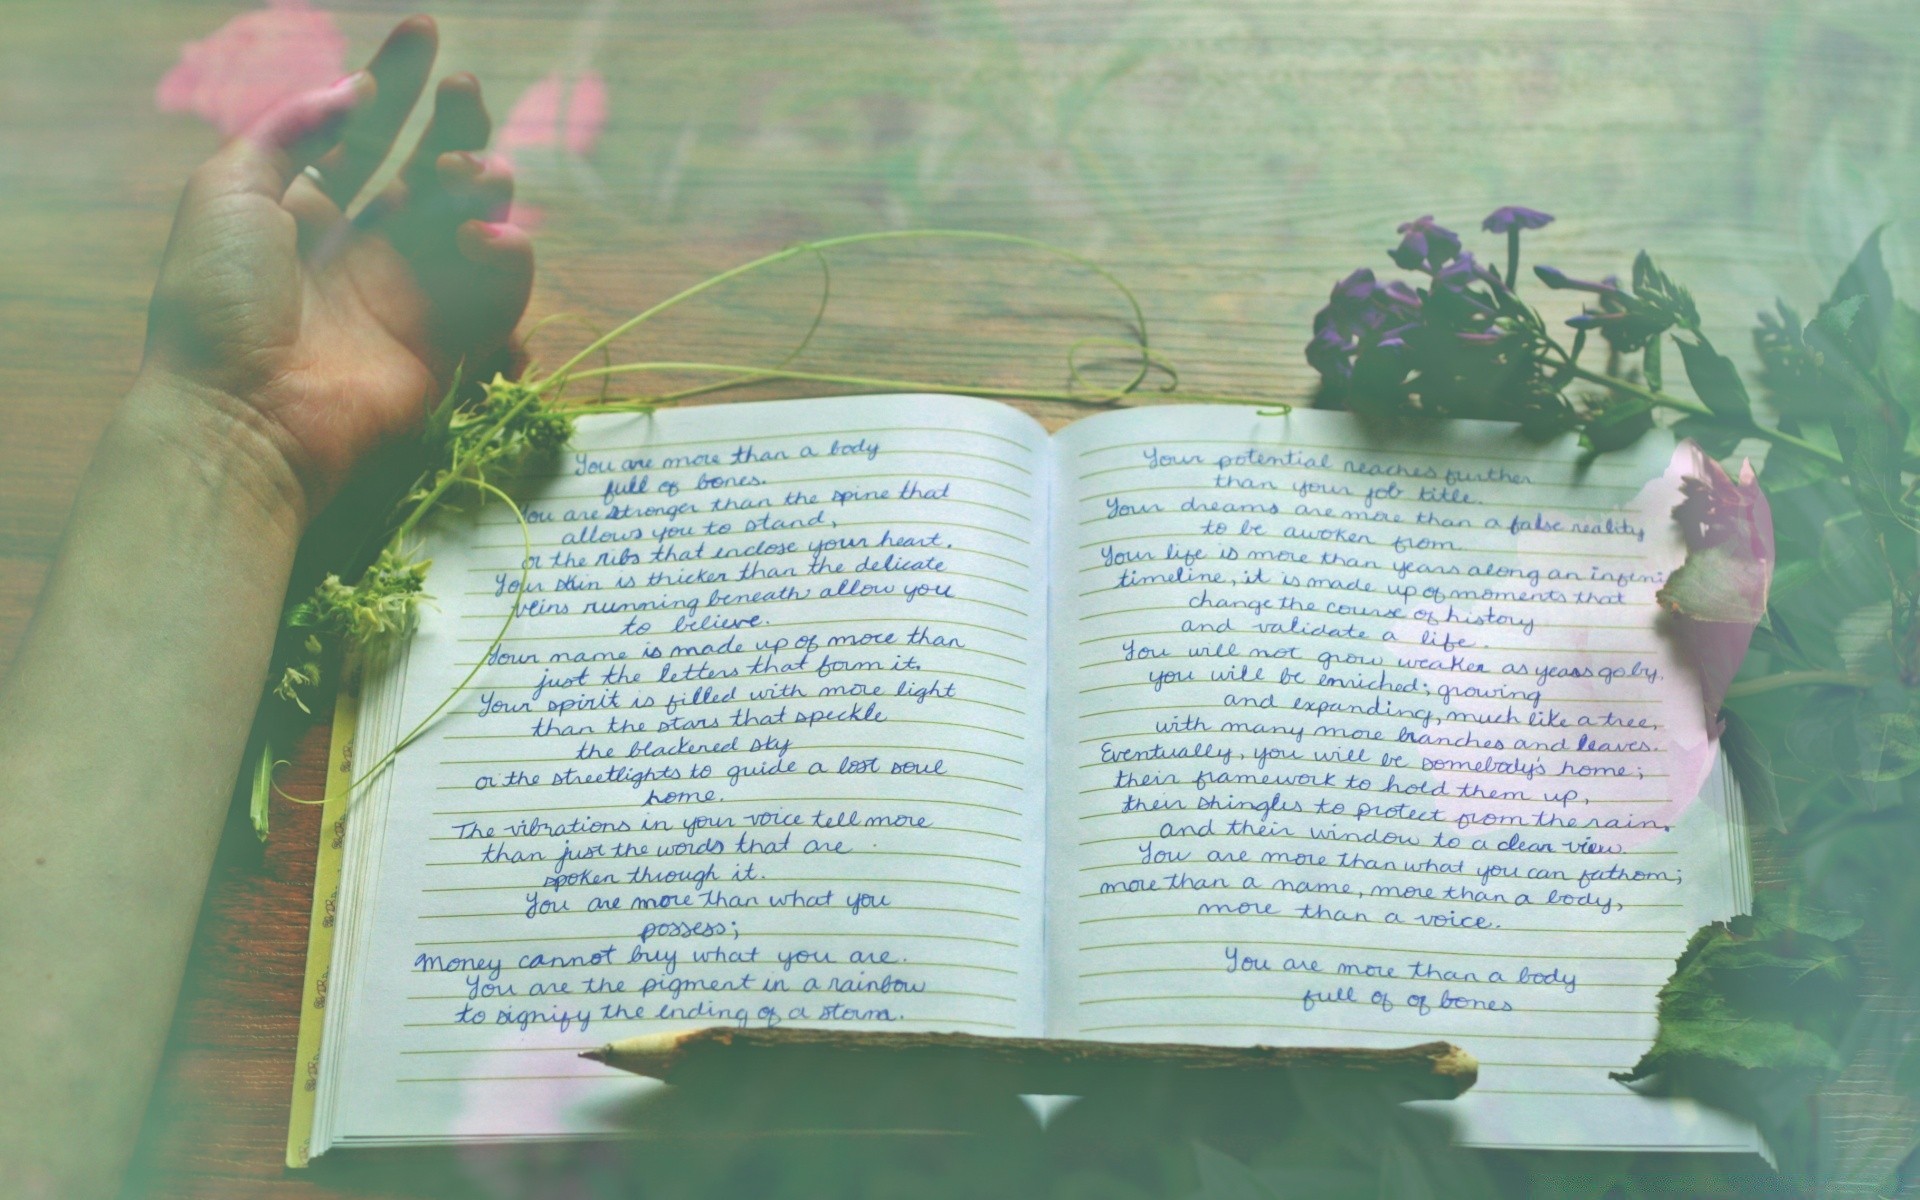 You are more than a body
full of bones.
You are stronger than the spine that
allows you to stand,
or the ribs that enclose your heart.
Your skin is thicker than the delicate
veins running beneath allow you
to believe.
Your name is made up of more than
just the letters that form it.
Your spirit is filled with more light
than the stars that speckle
the blackened sky
or the streetlights to guide a lost soul
home.
The vibrations in your voice tell more
than just the words that are
spoken through it.
You are more than what you
possess;
Money cannot buy what you are.
You are the pigment in a rainbow
to signify the ending of a storm.
Your potential reaches further
than your job title.
Your dreams are more than a false reality
to be awoken from.
Your life is more than years along an
timeline, it is made up of moments that
change the course of history
and validate a life.
You will not grow weaker as years go by.
you will be enriched; growing
and expanding, much like a tree,
with many more branches and leaves.
Eventually, you will be somebody's home;
their framework to hold them up,
their shingles to protect from the rain,
and their window to a clear view.
You are more than what you can fathom;
more than a name, more than a body,
more than a voice.
You are more than a body
full of of bones